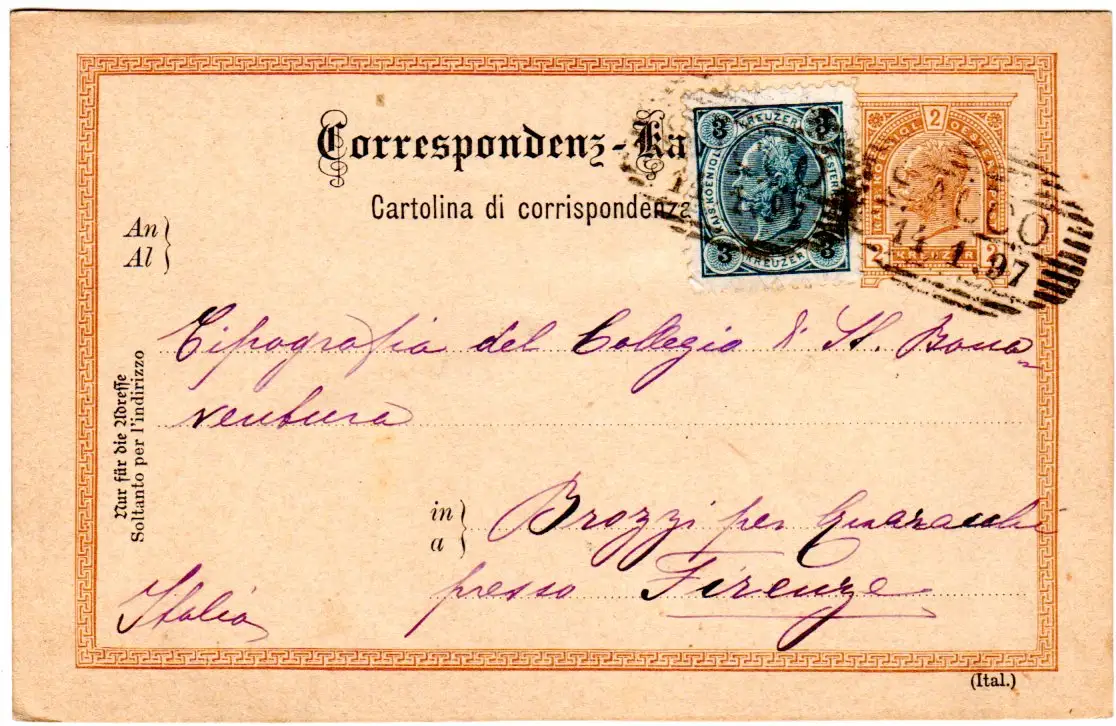 Correspondenz-Ka
Cartolina di corrispondenza
3 KREUZER 3
3 KREUZER 3
2
KAIS. KOENIGL. OESTERR.
2 KREUZER 2
14.1.97
An
Al
Tipografia del Collegio d S. Bona-
ventura
Nur für die Adresse
Soltanto per l'indirizzo
in
a
Brozzi per Quaracchi
presso Firenze
Italia
(Ital.)